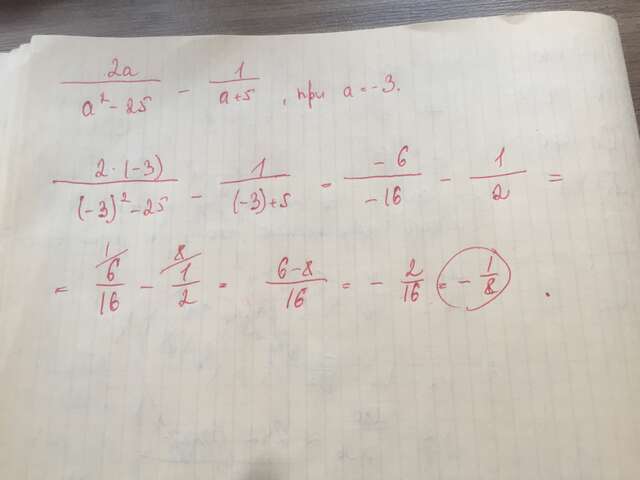 2a/(a² - 25) - 1/(a+5), при a = -3.
2·(-3)/((-3)² - 25) - 1/((-3)+5) = -6/-16 - 1/2 =
= 6/16 - 1/2 = (6-8)/16 = - 2/16 = - 1/8